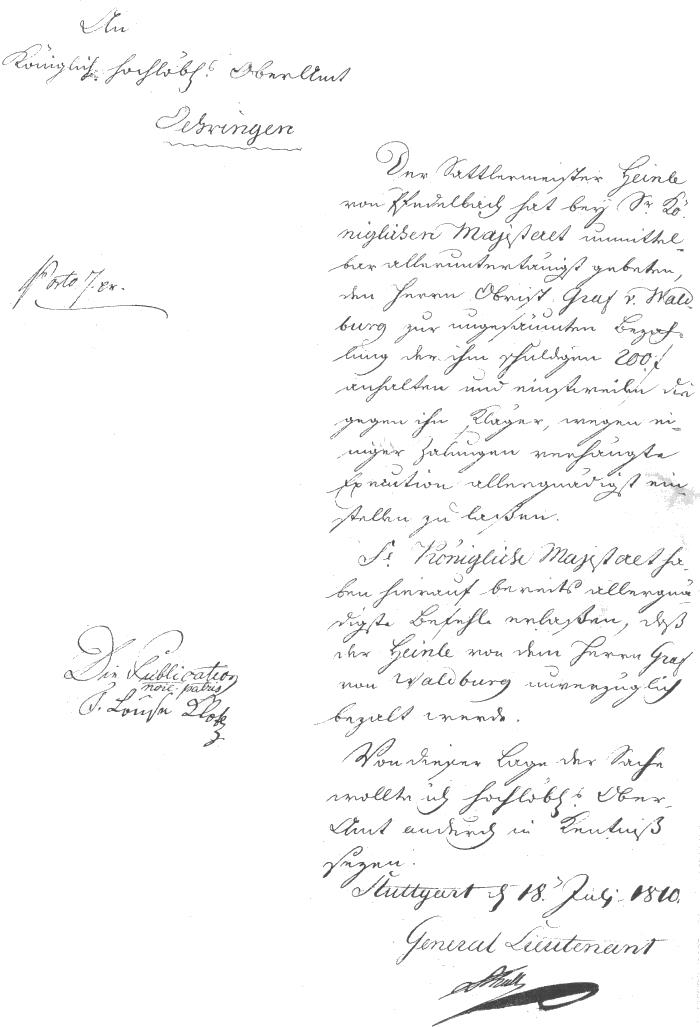 An
Königlich hochlöbl. OberAmt
Oehringen
Der Sattlermeister Heinle
von Pfedelbach hat bey Sr. Kö
niglichen Majestaet unmittel-
bar alleruntertänigst gebeten,
den Herrn Obrist Graf v. Wald
burg zur ungesäumten Bezah-
lung der ihm schuldigen 200 f
anhalten und einstweilen die
gegen ihn Kläger, wegen ei-
niger Zalungen verhängte
Execution allergnädigst ein-
stellen zu laßen.
Porto 7 xr.
Se. Königliche Majestaet ha-
ben hierauf bereits allergnä-
digste Befehle erlaßen, daß
der Heinle von dem Herrn Graf
von Waldburg unverzüglich
bezalt werde.
Die Publication
noie. patris
Von dieser Lage der Sache
wollte ich hochlöbl. Ober-
Amt andurch in Kentniß
sezen.
Stuttgart d. 18. July 1810.
General Lieutenant